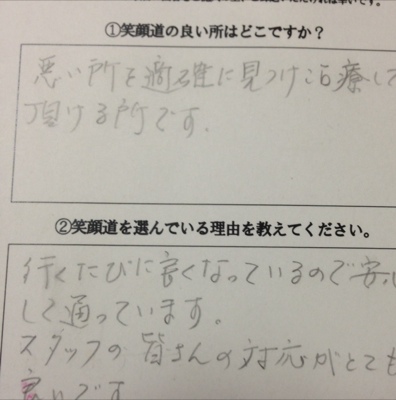 ①笑顔道の良い所はどこですか？
悪い所を適確に見つけ治療して
頂ける所です。
②笑顔道を選んでいる理由を教えてください。
行くたびに良くなっているので安心
して通っています。
スタッフの皆さんの対応がとても
良いです